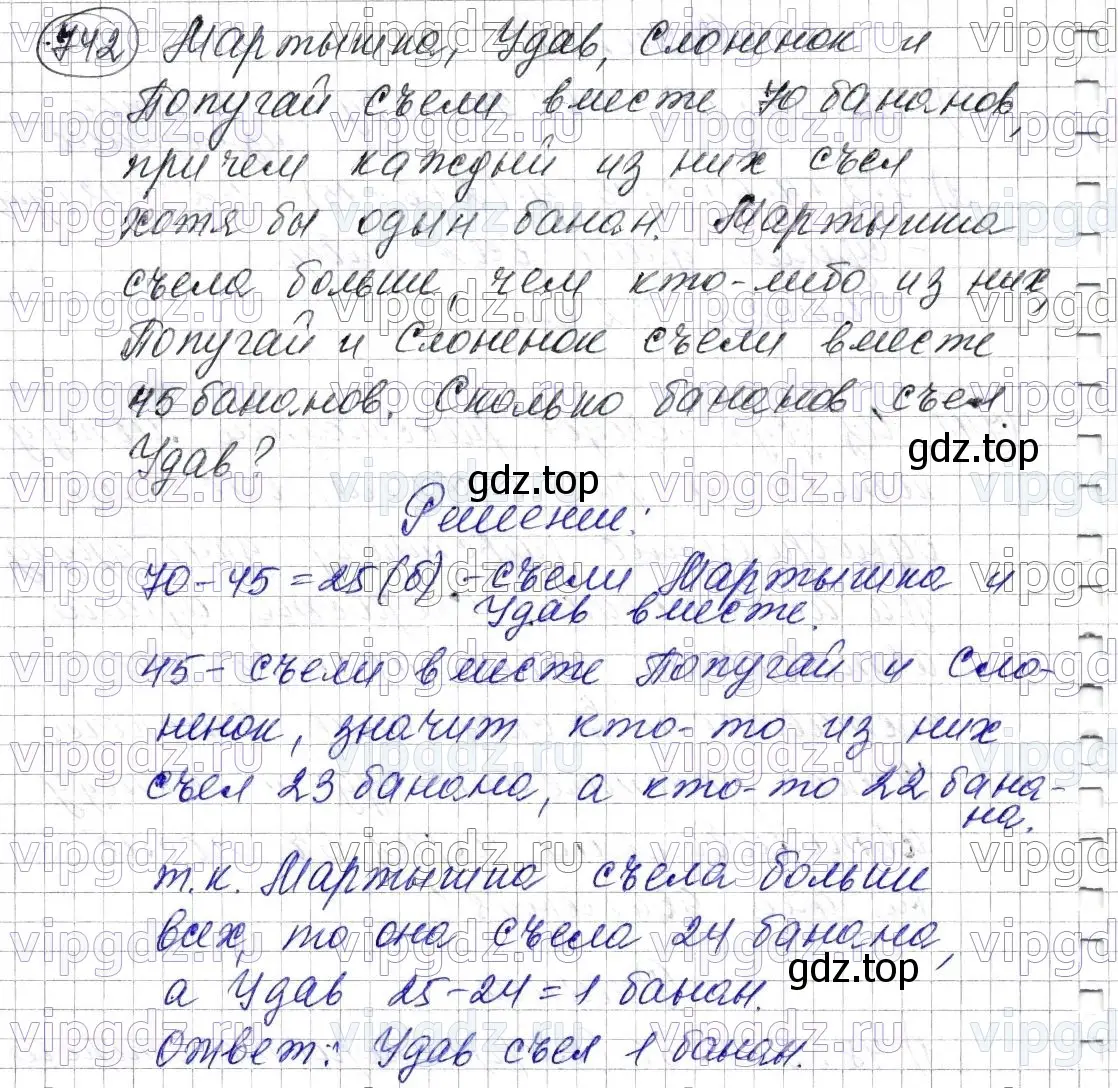 742 Мартышка, Удав, Слоненок и
Попугай съели вместе 70 бананов,
причем каждый из них съел
хотя бы один банан. Мартышка
съела больше, чем кто-либо из них,
Попугай и Слоненок съели вместе
45 бананов. Сколько бананов съел
Удав?
gdz.top
gdz.top
Решение:
70 - 45 = 25 (б) - съели Мартышка и
Удав вместе.
45 - съели вместе Попугай и Сло-
ненок, значит кто-то из них
съел 23 банана, а кто-то 22 бана-
на.
т.к. Мартышка съела больше
всех, то она съела 24 банана,
gdz.top
а Удав 25 - 24 = 1 банан.
Ответ: Удав съел 1 банан.
vipgdz.ru